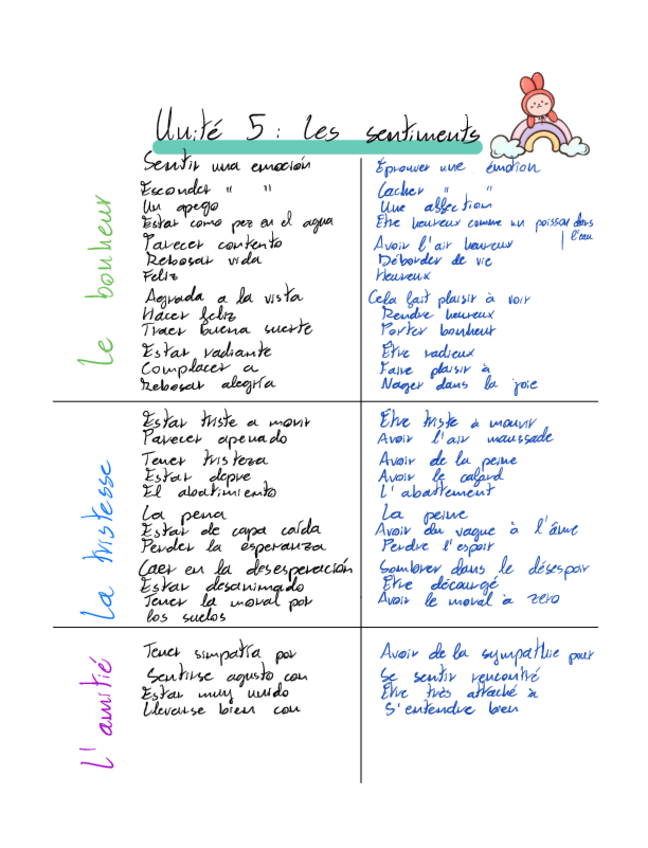 Unité 5: les sentiments
Le bonheur
Sentir una emoción Éprouver une émotion
Esconder " " Cacher " "
Un apego Une affection
Estar como pez en el agua Être heureux comme un poisson dans l'eau
Parecer contento Avoir l'air heureux
Rebosar vida Déborder de vie
Feliz Heureux
Agrada a la vista Cela fait plaisir à voir
Hacer feliz Rendre heureux
Traer buena suerte Porter bonheur
Estar radiante Être radieux
Complacer a Faire plaisir à
Rebosar alegría Nager dans la joie
La tristesse
Estar triste a morir Être triste à mourir
Parecer apenado Avoir l'air maussade
Tener tristeza Avoir de la peine
Estar depre Avoir le cafard
El abatimiento L'abattement
La pena La peine
Estar de capa caída Avoir du vague à l'âme
Perder la esperanza Perdre l'espoir
Caer en la desesperación Sombrer dans le désespoir
Estar desanimado Être découragé
Tener la moral por los suelos Avoir le moral à zéro
L'amitié
Tener simpatía por Avoir de la sympathie pour
Sentirse agusto con Se sentir rencontré
Estar muy unido Être très attaché à
Llevarse bien con S'entendre bien